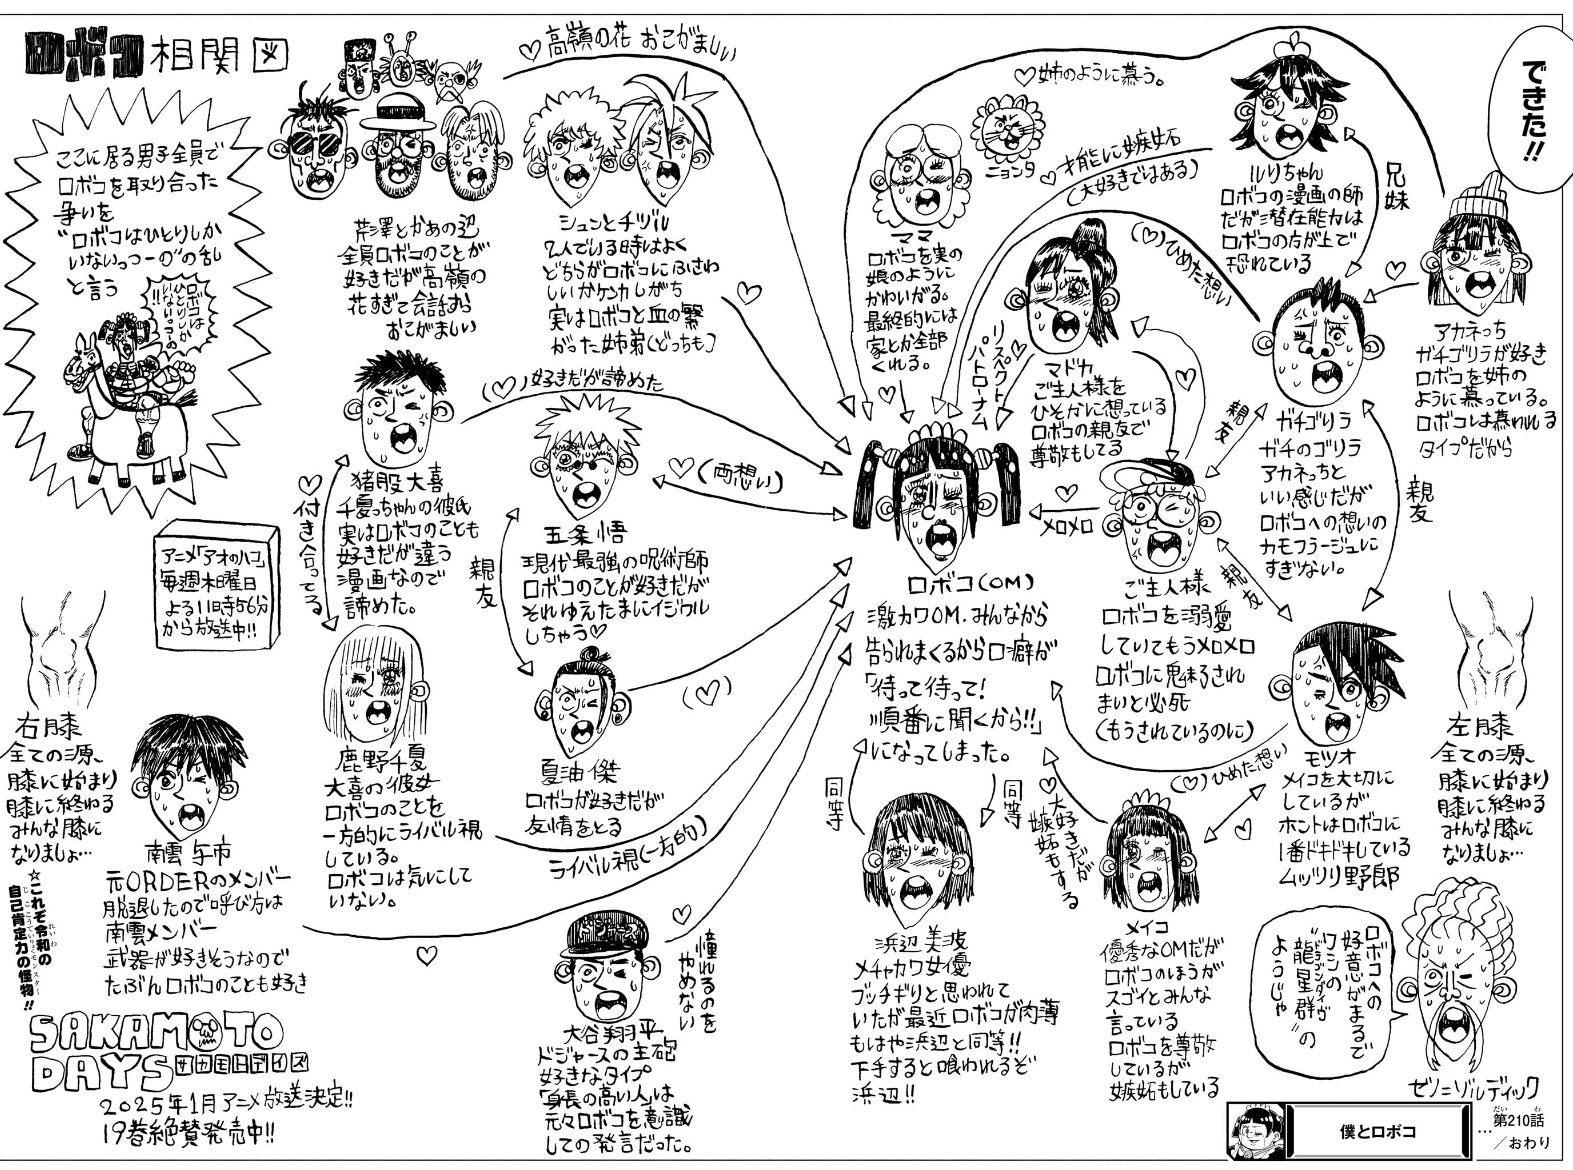 ロボコ相関図
できた!!
ここに居る男子全員で
ロボコを取り合った
争いを
"ロボコはひとりしか
いないっつーの"の乱
と言う
ロボコは
ひとりしか
いないっつーの
!!
♡高嶺の花 おこがましい
芹澤とかあの辺
全員ロボコのことが
好きだが高嶺の
花すぎて会話すら
おこがましい
シュンとチヅル
2人でいる時はよく
どちらがロボコにふさわ
しいかケンカしがち
実はロボコと血の繋
がった姉弟(どっちも)
♡
♡姉のように慕う。
ニョンタ
♡才能に嫉妬
(大好きではある)
ママ
ロボコを実の
娘のように
かわいがる。
最終的には
家とか全部
くれる。
♡
ルリちゃん
ロボコの漫画の師
だが潜在能力は
ロボコの方が上で
恐れている
兄妹
♡
アカネっち
ガチゴリラが好き
ロボコを姉の
ように慕っている。
ロボコは慕われる
タイプだから
(♡)ひめた想い
リスペクト♡
パトローナム
マドカ
ご主人様を
ひそかに想っている
ロボコの親友で
尊敬もしてる
♡
ガチゴリラ
ガチのゴリラ
アカネっちと
いい感じだが
ロボコへの想いの
カモフラージュに
すぎない。
親友
親友
親友
♡
メロメロ
ご主人様
ロボコを溺愛
していてもうメロメロ
ロボコに魅了され
まいと必死
(もうされているのに)
(♡)好きだが諦めた
猪股大喜
千夏っちゃんの彼氏
実はロボコのことも
好きだが違う
漫画なので
諦めた。
♡付き合ってる
親友
♡(両想い)
五条悟
現代最強の呪術師
ロボコのことが好きだが
それゆえたまにイジワル
しちゃう♡
ロボコ(OM)
激カワOM.みんなから
告られまくるから口癖が
「待って待って!
順番に聞くから!!」
になってしまった。
アニメ「アオのハコ」
毎週木曜日
よる11時56分
から放送中!!
右膝
全ての源、
膝に始まり
膝に終わる
みんな膝に
なりましょ…
☆これぞ令和の
自己肯定力の怪物!!
れいわ
じここうていりょくモンスター
南雲与市
元ORDERのメンバー
脱退したので呼び方は
南雲メンバー
武器が好きそうなので
たぶんロボコのことも好き
♡
鹿野千夏
大喜の彼女
ロボコのことを
一方的にライバル視
している。
ロボコは気にして
いない。
ライバル視(一方的)
夏油傑
ロボコが好きだが
友情をとる
(♡)
モツオ
メイコを大切に
しているが
ホントはロボコに
1番ドキドキしている
ムッツリ野郎
(♡)ひめた想い
♡
左膝
全ての源、
膝に始まり
膝に終わる
みんな膝に
なりましょ…
同等
同等
♡大好きだが
嫉妬もする
浜辺美波
メチャカワ女優
ブッチギリと思われて
いたが最近ロボコが肉薄
もはや浜辺と同等!!
下手すると喰われるぞ
浜辺!!
メイコ
優秀なOMだが
ロボコのほうが
スゴイとみんな
言っている
ロボコを尊敬
しているが
嫉妬もしている
♡憧れるのを
やめない
大谷翔平
ドジャースの主砲
好きなタイプ
「身長の高い人」は
元々ロボコを意識
しての発言だった。
ロボコへの
好意がまるで
ワシの
"龍星群"の
ドラゴンダイヴ
ようじゃ
ゼノ=ゾルディック
SAKAMOTO
DAYS サカモトデイズ
2025年1月アニメ放送決定!!
19巻絶賛発売中!!
僕とロボコ
…第210話
だい
わ
／おわり